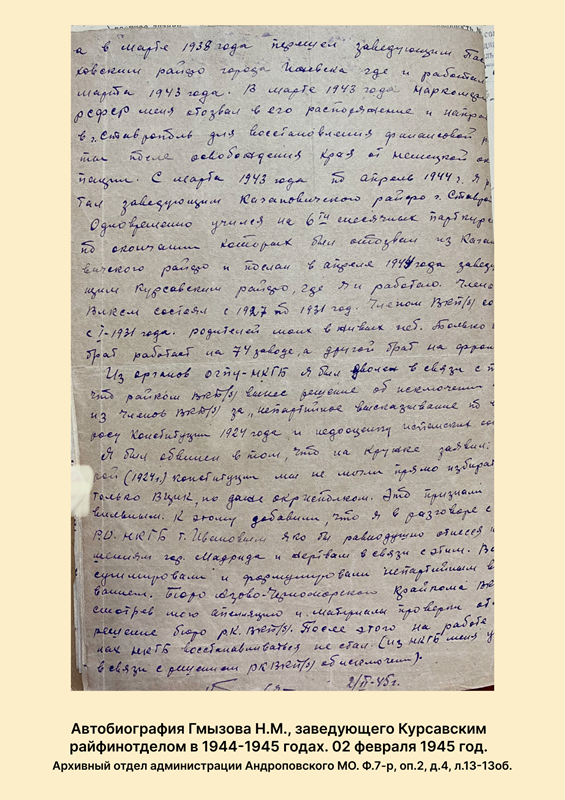 а в марте 1938 года перешел заведующим Пас
ховским райфо города Ижевска где и работал
марта 1943 года. В марте 1943 года Наркомфин
РСФСР меня отозвал в его распоряжение и напра
в г. Ставрополь для восстановления финансовой р
ты после освобождения края от немецкой ок
пации. С марта 1943 года по апрель 1944 г. Я р
тал заведующим Кагановичского райфо г. Ставро
Одновременно учился на 6ти месячных парткурс
по окончании которых был отозван из Кагано
вичского райфо и послан в апреле 1944 года заведу
щим Курсавским райфо, где Я и работаю. Члено
ВЛКСМ состоял с 1927 по 1931 год. Членом ВКП/б/ со
с I-1931 года. родителей моих в живых нет. Только
брат работает на 74 заводе, а другой брат на фрон
Из органов ОГПУ-НКГБ Я был уволен в связи с т
что райком ВКП/б/ вынес решение об исключении
из членов ВКП/б/ за „непартийное высказывание по
росу Конституции 1924 года и недооценку испанских со
Я был обвинен в том, что на кружке заявил:
рой (1924 г.) конституции мы не могли прямо избира
только ВЦИК, но даже окрисполком. Это признали
вильным. К этому добавили, что Я в разговоре с
Р.О. НКГБ т. Ивановым яко бы равнодушно отнесся
шениям гор. Мадрида и жертвам в связи с этим. Вс
суммировали и формулировали непартийным в
ванием. Бюро Азово-Черноморского Крайкома ВК
смотрев мою апеляцию и материалы проверки от
решение бюро РК. ВКП/б/. После этого на работе
нах НКГБ восстанавливаться не стал (из НКГБ меня у
в связи с решением РК ВКП/б/ об исключении).
2/II-45г.
Автобиография Гмызова Н.М., заведующего Курсавским
райфинотделом в 1944-1945 годах. 02 февраля 1945 год.
Архивный отдел администрации Андроповского МО. Ф.7-р, оп.2, д.4, л.13-13об.